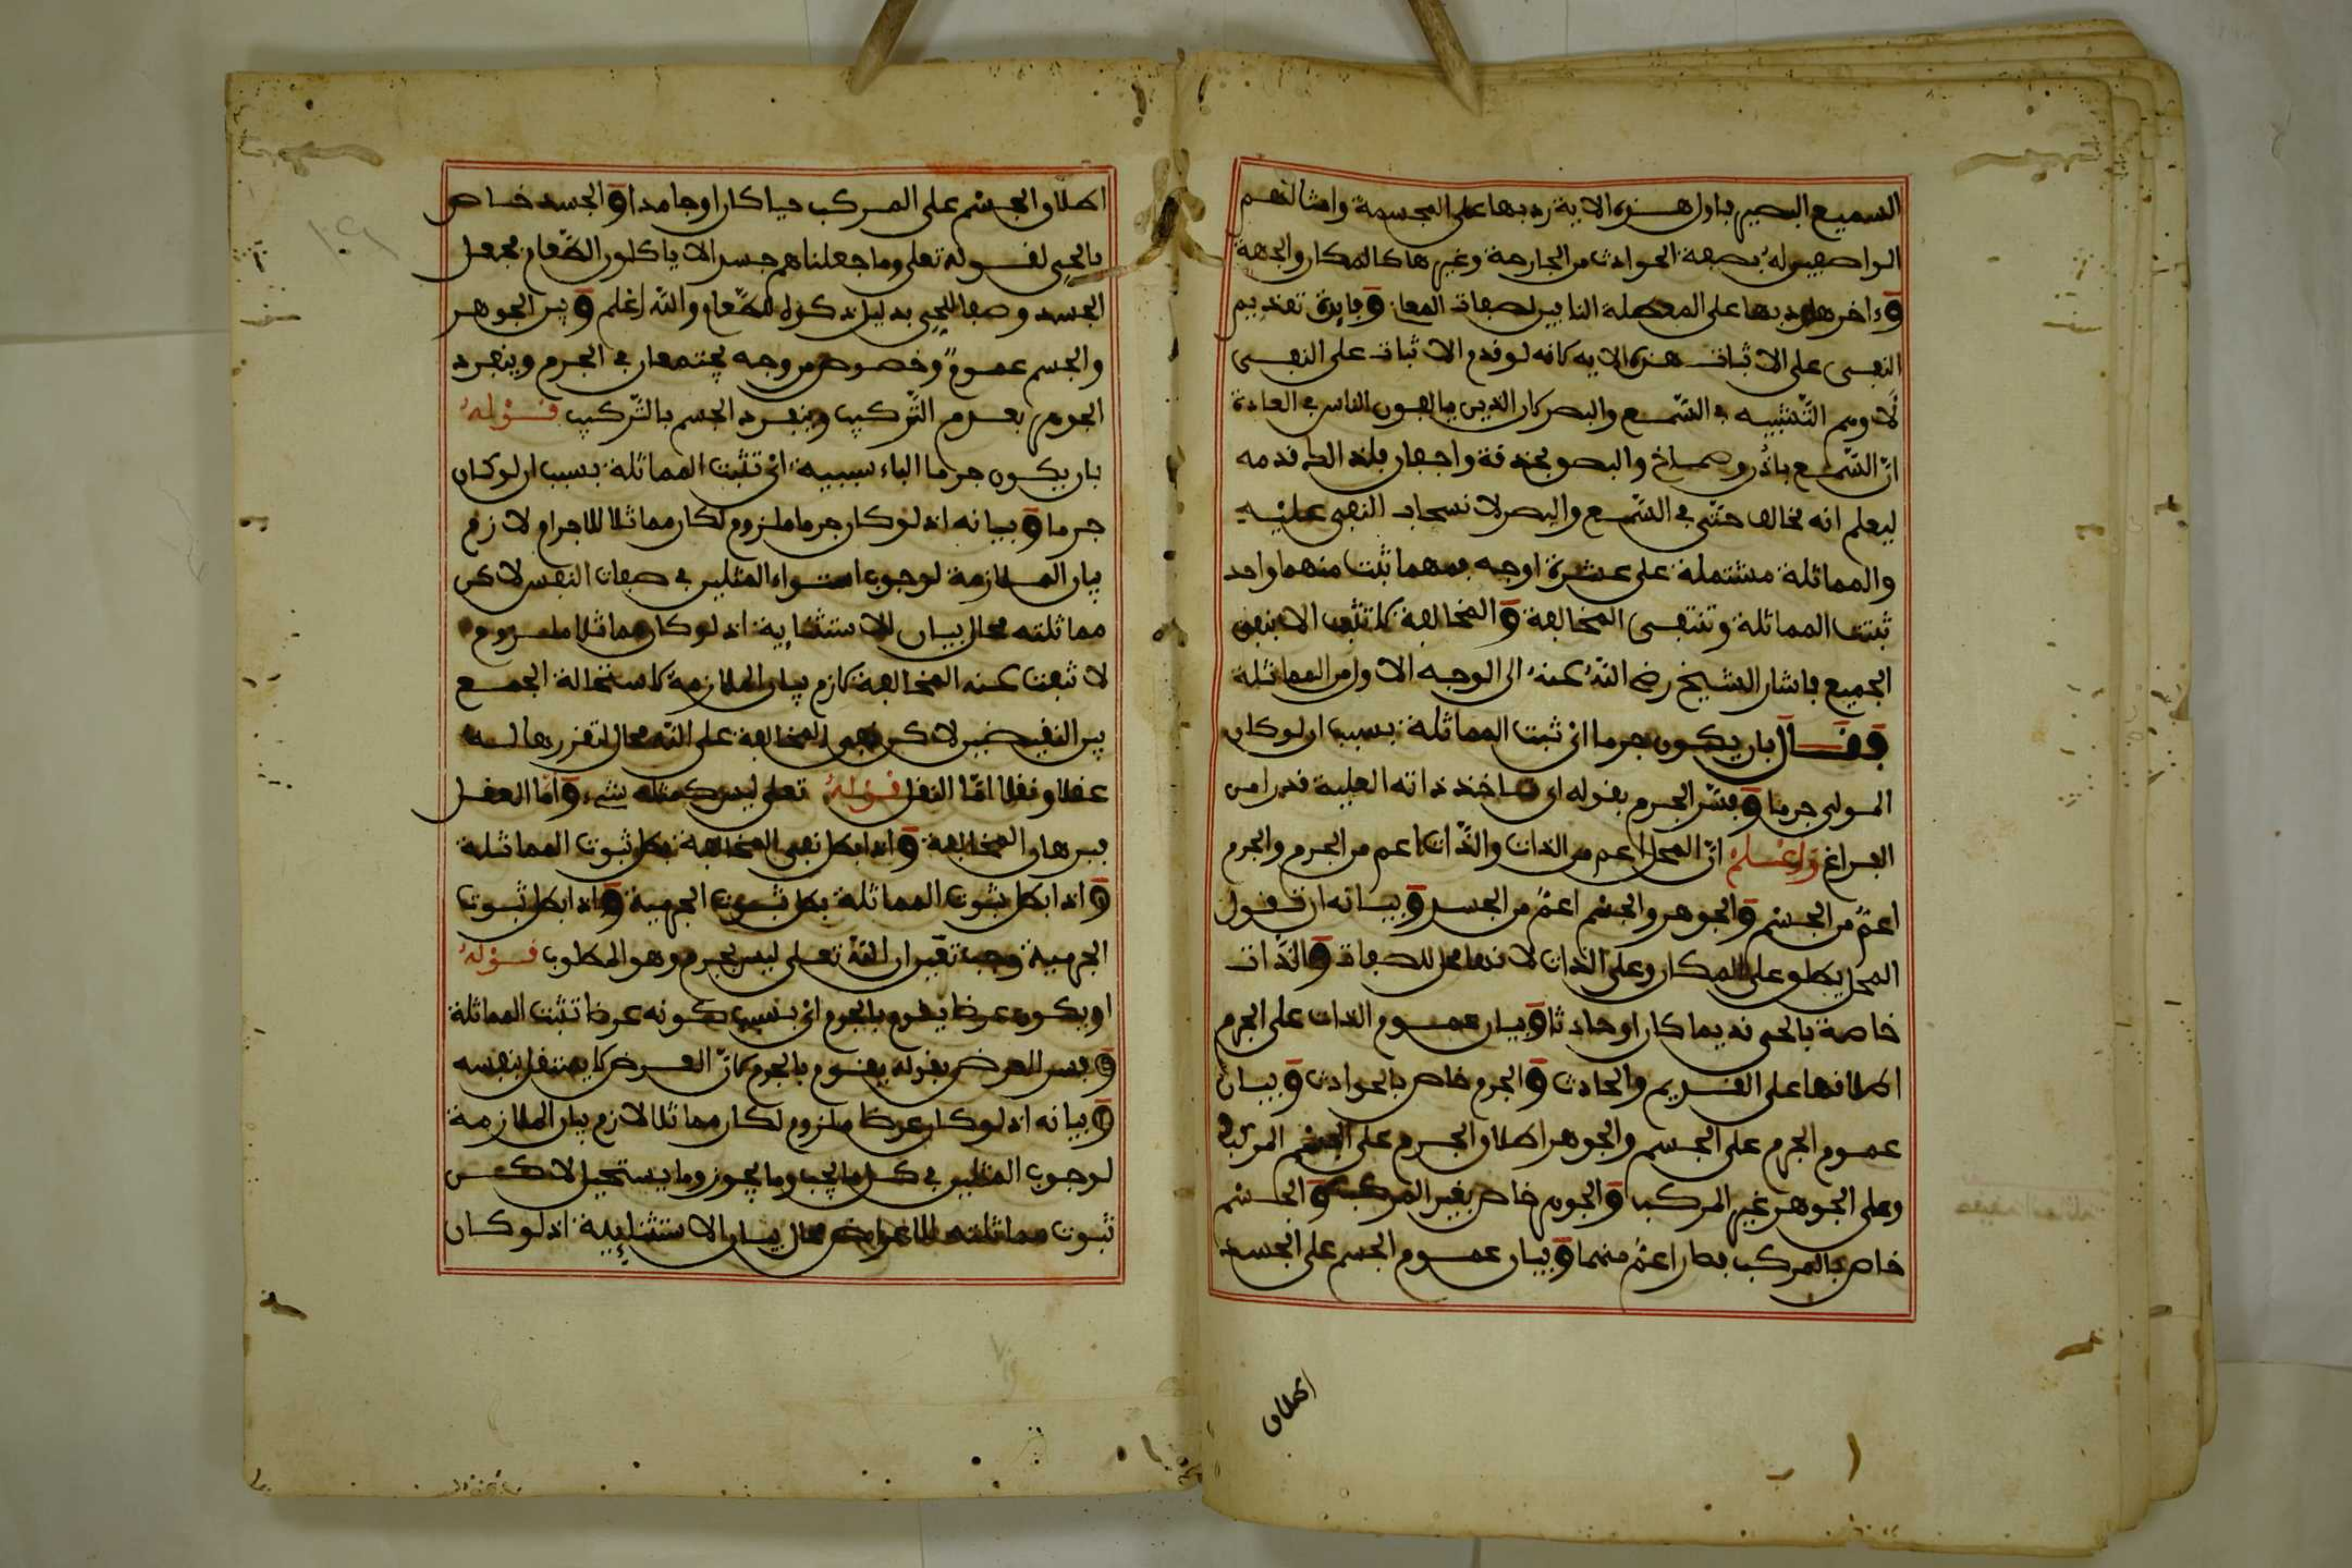 السميع البصير فاول هذه الاية رد بها على المجسمة وامثالهم
الواصفين له بصفة الحوادث من الجارحة وغيرها كالمكان والجهة
وءاخرها رد بها على المعطلة النافين لصفات المعاني وفايدة تقديم
النفي على الاثبات في هذه الاية كانه لو قدم الاثبات على النفي
لاوهم التشبيه في السمع والبصر كان الذي يالفون الناس في العادة
ان السمع باذن وصماخ والبصر بحدقة واجفان فلذالك قدمه
ليعلم انه مخالف حتى في السمع والبصر لانسحاب النفي عليه
والمماثلة مشتملة على عشرة اوجه فمهما ثبت منهما واحد
ثبتت المماثلة وتنتفي المخالفة والمخالفة لا تثبت الا بنفي
الجميع فاشار الشيخ رضي الله عنه الى الوجه الاول من المماثلة
فقال بان يكون جرما اي ثبت المماثلة بسبب ان لو كان
المولى جرما وفسر الجرم بقوله اي تاخذ ذاته العلية قدرا من
الفراغ واعلم ان المحل اعم من الذات والذات اعم من الجرم والجرم
اعم من الجسم والجوهر والجسم اعم من الجسد وبيانه ان تقول
المحل يطلق على المكان وعلى الذات لانها محل للصفات والذات
خاصة بالحي قديما كان او حادثا وبيان عموم الذات على الجرم
اطلاقها على القديم والحادث والجرم خاص بالحوادث وبيان
عموم الجرم على الجسم والجوهر اطلاق الجرم على الجسم المركب
وعلى الجوهر غير المركب والجوهر خاص بغير المركب والجسم
خاص بالمركب فصار اعم منهما وبيان عموم الجسم على الجسد
اطلاق
اطلاق الجسم على المركب حيا كان او جامدا والجسد خاص
بالحي لقوله تعلى وما جعلناهم جسدا لا ياكلون الطعام فجعل
الجسد وصفا للحي بدليل ذكره للطعام والله اعلم وبين الجوهر
والجسم عموم وخصوص من وجه يجتمعان في الجرم وينفرد
الجوهر بعدم التركيب وينفرد الجسم بالتركيب قوله
بان يكون جرما الباء سببية اي تثبت المماثلة بسبب ان لو كان
جرما وبيانه اذ لو كان جرما ملزوم لكان مماثلا للاجرام لازم
بيان الملازمة لوجوب استواء المثلين في صفات النفس لاكن
مماثلته محال بيان الاستثنايية اذ لو كان مماثلا ملزوم
لا ثبتت عنه المخالفة لازم بيان الملازمة لاستحالة الجمع
بين النقيضين لاكن نفي المخالفة على الله محال لتقررها له
عقلا ونقلا اما النقل قوله تعلى ليس كمثله شيء واما العقل
فبرهان المخالفة واذا بطل نفي المخالفة بطل ثبوت المماثلة
واذا بطل ثبوت المماثلة بطل ثبوت الجرمية واذا بطل ثبوت
الجرمية وجب تعين ان الله تعلى ليس بجرم وهو المطلوب قوله
او يكون عرضا يقوم بالجرم اي بسبب كونه عرضا تثبت المماثلة
وفسر العرض بقوله يقوم بالجرم لان العرض لا يستقل بنفسه
وبيانه اذ لو كان عرضا ملزوم لكان مماثلا لازم بيان الملازمة
لوجوب المثلين في كل ما يجب وما يجوز وما يستحيل لاكن
ثبوت مماثلته للاعراض محال بيان الاستثنايية اذ لو كان